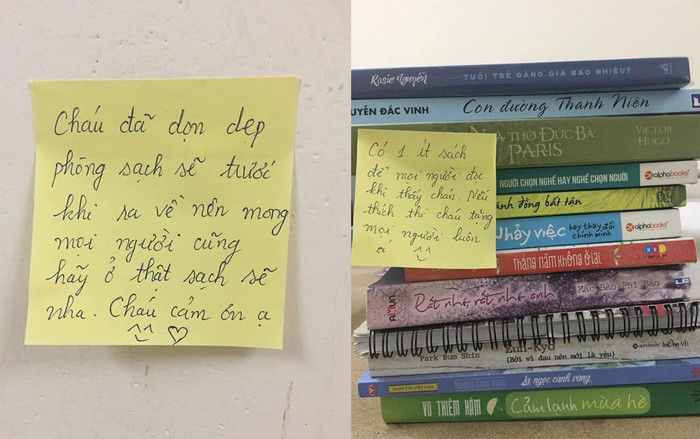 Cháu đã dọn dẹp
phòng sạch sẽ trước
khi ra về nên mong
mọi người cũng
hãy ở thật sạch sẽ
nha. Cháu cảm ơn ạ
^^ ♡
Rosie Nguyễn TUỔI TRẺ ĐÁNG GIÁ BAO NHIÊU?
UYỄN ĐẮC VINH Con đường Thanh Niên
NHÀ THỜ ĐỨC BÀ PARIS VICTOR HUGO
Có 1 ít sách
để mọi người đọc
khi thấy chán. Nếu
thích thì cháu tặng
mọi người luôn
ạ ^^
NGƯỜI CHỌN NGHỀ HAY NGHỀ CHỌN NGƯỜI alphabooks
ánh đồng bất tận
Nhảy việc hay thay đổi chính mình alphabooks
Tháng năm không ở lại
Rất nhớ, rất nhớ anh Mặc Bảo Phi Bảo
AMUN
Park Bum Shin Eun-Kyo
(Bởi vì đau nên mới là yêu)
Lá ngọc cành vàng
VU THIÊM HÂM Cảm lạnh mùa hè